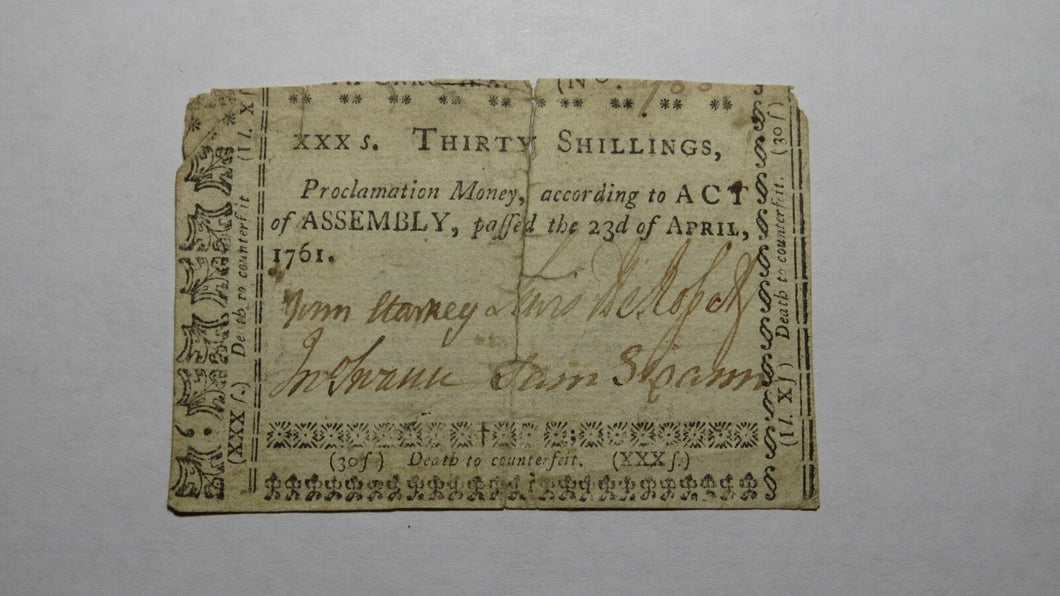 TH CAROLINA. (No. 
XXX s. THIRTY SHILLINGS,
Proclamation Money, according to ACT
of ASSEMBLY, paſſed the 23d of APRIL,
1761.
Starkey Lewis De Roſſet
Jn Swann Sam Swann
(30ſ) Death to counterfeit. (XXX ſ.)
(XXX ſ.) Death to counterfeit (1 l. X ſ
(1 l. X ſ) Death to counterfeit. (30ſ)